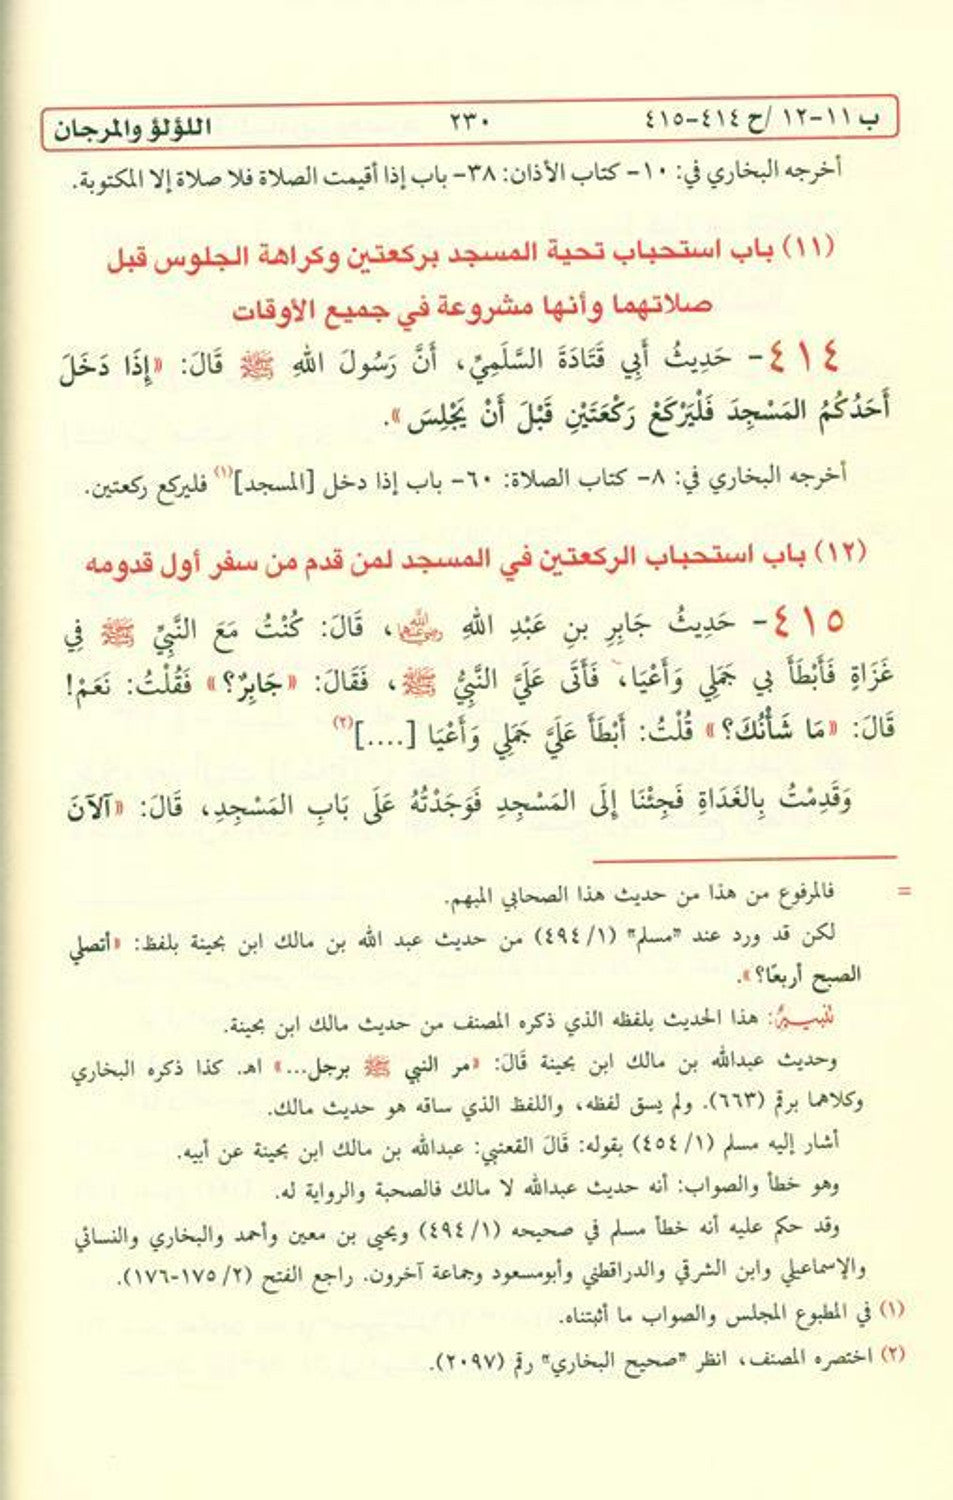 ب ١١-١٢ / ح ٤١٤-٤١٥ ٢٣٠ اللؤلؤ والمرجان
أخرجه البخاري في: ١٠- كتاب الأذان: ٣٨- باب إذا أقيمت الصلاة فلا صلاة إلا المكتوبة.
(١١) باب استحباب تحية المسجد بركعتين وكراهة الجلوس قبل
صلاتهما وأنها مشروعة في جميع الأوقات
٤١٤- حَدِيثُ أَبِي قَتَادَةَ السَّلَمِيِّ، أَنَّ رَسُولَ اللهِ ﷺ قَالَ: «إِذَا دَخَلَ
أَحَدُكُمُ المَسْجِدَ فَلْيَرْكَعْ رَكْعَتَيْنِ قَبْلَ أَنْ يَجْلِسَ».
أخرجه البخاري في: ٨- كتاب الصلاة: ٦٠- باب إذا دخل [المسجد](١) فليركع ركعتين.
(١٢) باب استحباب الركعتين في المسجد لمن قدم من سفر أول قدومه
٤١٥- حَدِيثُ جَابِرِ بنِ عَبْدِ اللهِ رضي الله عنهما، قَالَ: كُنْتُ مَعَ النَّبِيِّ ﷺ فِي
غَزَاةٍ فَأَبْطَأَ بِي جَمَلِي وَأَعْيَا، فَأَتَى عَلَيَّ النَّبِيُّ ﷺ، فَقَالَ: «جَابِرٌ؟» فَقُلْتُ: نَعَمْ!
قَالَ: «مَا شَأْنُكَ؟» قُلْتُ: أَبْطَأَ عَلَيَّ جَمَلِي وَأَعْيَا [....](٢)
وَقَدِمْتُ بِالغَدَاةِ فَجِئْنَا إِلَى المَسْجِدِ فَوَجَدْتُهُ عَلَى بَابِ المَسْجِدِ، قَالَ: «آلآنَ
= فالمرفوع من هذا من حديث هذا الصحابي المبهم.
لكن قد ورد عند "مسلم" (١/ ٤٩٤) من حديث عبد الله بن مالك ابن بحينة بلفظ: «أتصلي
الصبح أربعًا؟».
تنبيه: هذا الحديث بلفظه الذي ذكره المصنف من حديث مالك ابن بحينة.
وحديث عبدالله بن مالك ابن بحينة قَالَ: «مر النبي ﷺ برجل...» اهـ. كذا ذكره البخاري
وكلاهما برقم (٦٦٣). ولم يسق لفظه، واللفظ الذي ساقه هو حديث مالك.
أشار إليه مسلم (١/ ٤٥٤) بقوله: قَالَ القعنبي: عبدالله بن مالك ابن بحينة عن أبيه.
وهو خطأ والصواب: أنه حديث عبدالله لا مالك فالصحبة والرواية له.
وقد حكم عليه أنه خطأ مسلم في صحيحه (١/ ٤٩٤) ويحيى بن معين وأحمد والبخاري والنسائي
والإسماعيلي وابن الشرقي والدراقطني وأبومسعود وجماعة آخرون. راجع الفتح (٢/ ١٧٥-١٧٦).
(١) في المطبوع المجلس والصواب ما أثبتناه.
(٢) اختصره المصنف، انظر "صحيح البخاري" رقم (٢٠٩٧).